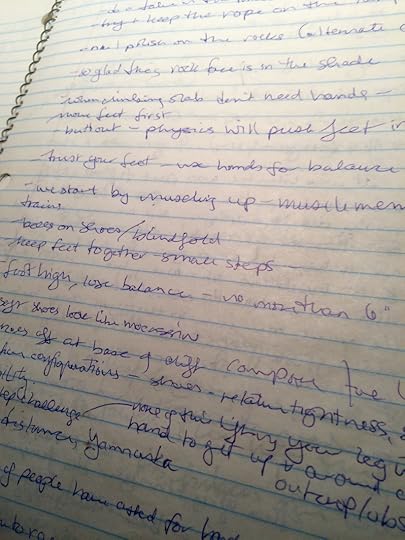 keep the rope on the
- nail polish on the rocks (alternate
- so glad this rock face is in the shade
climbing slab don't need hands -
move feet first
- butt out - physics will push feet in
- trust your feet - use hands for balance
- we start by muscling up - muscle mem
trains
- boxes on shoes/blindfold
keep feet together small steps -
- foot high, lose balance - no more than 6"
shoes loose like moccasin
off at base of cliff compose
configurations - shoes - retain tightness,
challenge none of this lifting your leg
hand to get up & around
distances, Yamnuska outcrop/obs
of people have asked for